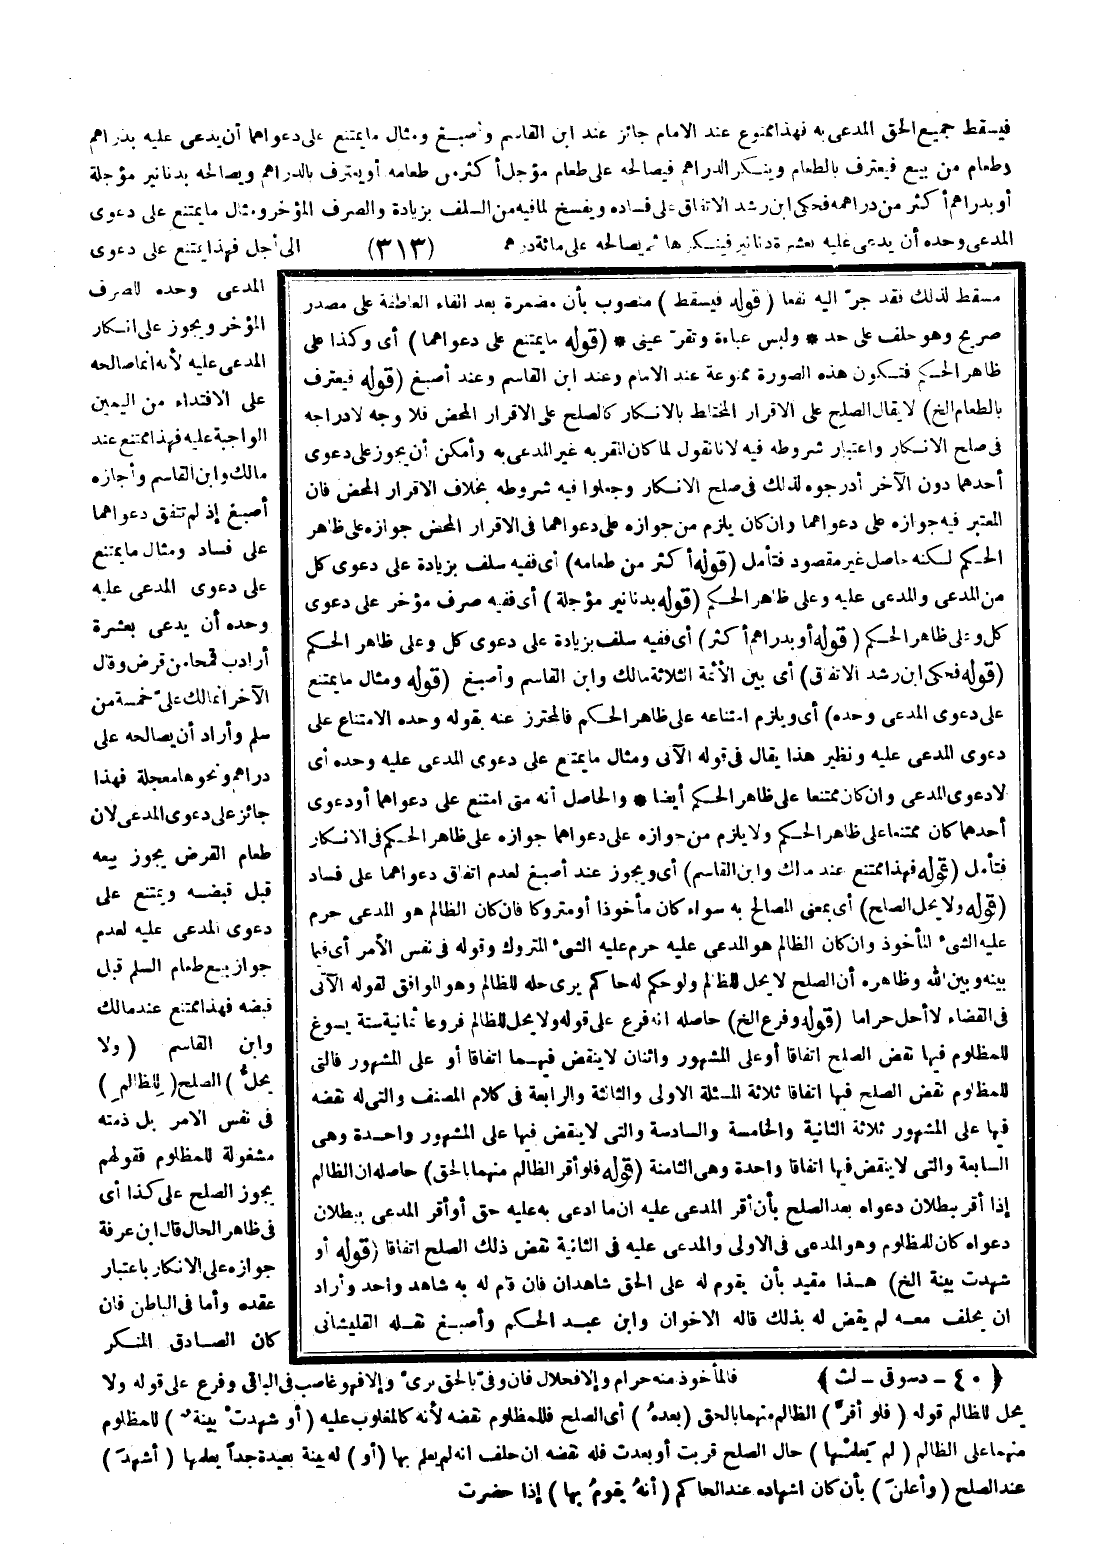 فيسقط جميع الحق المدعى به فهذا ممنوع عند الامام جائز عند ابن القاسم وأصبغ ومثال مايمتنع على دعواهما أن يدعى عليه بدراهم
وطعام من بيع فيعترف بالطعام وينكر الدراهم فيصالحه على طعام مؤجل أكثر من طعامه أو يعترف بالدراهم ويصالحه بدنانير مؤجلة
أو بدراهم أكثر من دراهمه فحكى ابن رشد الاتفاق على فساده ويفسخ لمافيه من السلف بزيادة والصرف المؤخر ومثال مايمتنع على دعوى
المدعى وحده أن يدعى عليه بعشرة دنانير فينكرها ثم يصالحه على مائة درهم (٣١٣) الى أجل فهذا يمتنع على دعوى
المدعى وحده للصرف
المؤخر ويجوز على انكار
المدعى عليه لأنه انما صالحه
على الافتداء من اليمين
الواجبة عليه فهذا ممتنع عند
مالك وابن القاسم وأجازه
أصبغ إذ لم تتفق دعواهما
على فساد ومثال مايمتنع
على دعوى المدعى عليه
وحده أن يدعى بعشرة
أرادب قمحا من قرض وقال
الآخر انمالك علىّ خمسة من
سلم وأراد أن يصالحه على
دراهم ونحوها معجلة فهذا
جائز على دعوى المدعى لان
طعام القرض يجوز بيعه
قبل قبضه ويمتنع على
دعوى المدعى عليه لعدم
جواز بيع طعام السلم قبل
قبضه فهذا ممتنع عند مالك
وابن القاسم (ولا
يحلُّ) الصلح (لِلظالمِ)
فى نفس الامر بل ذمته
مشغولة للمظلوم فقولهم
يجوز الصلح على كذا أى
فى ظاهر الحال قال ابن عرفة
جوازه على الانكار باعتبار
عقده وأما فى الباطن فان
كان الصادق المنكر
مسقط لذلك فقد جرّ اليه نفعا (قوله فيسقط) منصوب بأن مضمرة بعد الفاء العاطفة على مصدر
صريح وهو حلف على حد * ولبس عباءة وتقرّ عينى * (قوله مايمتنع على دعواهما) أى وكذا على
ظاهر الحكم فتكون هذه الصورة ممنوعة عند الامام وعند ابن القاسم وعند أصبغ (قوله فيعترف
بالطعام الخ) لا يقال الصلح على الاقرار المختلط بالانكار كالصلح على الاقرار المحض فلا وجه لادراجه
فى صلح الانكار واعتبار شروطه فيه لانا نقول لما كان المقر به غير المدعى به وأمكن أن يجوز على دعوى
أحدهما دون الآخر أدرجوه لذلك فى صلح الانكار وجعلوا فيه شروطه بخلاف الاقرار المحض فان
المعتبر فيه جوازه على دعواهما وان كان يلزم من جوازه على دعواهما فى الاقرار المحض جوازه على ظاهر
الحكم لكنه حاصل غير مقصود فتأمل (قوله أكثر من طعامه) أى ففيه سلف بزيادة على دعوى كل
من المدعى والمدعى عليه وعلى ظاهر الحكم (قوله بدنانير مؤجلة) أى ففيه صرف مؤخر على دعوى
كل وعلى ظاهر الحكم (قوله أو بدراهم أكثر) أى ففيه سلف بزيادة على دعوى كل وعلى ظاهر الحكم
(قوله فحكى ابن رشد الاتفاق) أى بين الأئمة الثلاثة مالك وابن القاسم وأصبغ (قوله ومثال مايمتنع
على دعوى المدعى وحده) أى ويلزم امتناعه على ظاهر الحكم فالمحترز عنه بقوله وحده الامتناع على
دعوى المدعى عليه ونظير هذا يقال فى قوله الآتى ومثال مايمتنع على دعوى المدعى عليه وحده أى
لا دعوى المدعى وان كان ممتنعا على ظاهر الحكم أيضا * والحاصل أنه متى امتنع على دعواهما أو دعوى
أحدهما كان ممتنعا على ظاهر الحكم ولا يلزم من جوازه على دعواهما جوازه على ظاهر الحكم فى الانكار
فتأمل (قوله فهذا ممتنع عند مالك وابن القاسم) أى ويجوز عند أصبغ لعدم اتفاق دعواهما على فساد
(قوله ولا يحل الصلح) أى بمعنى المصالح به سواء كان مأخوذا أو متروكا فان كان الظالم هو المدعى حرم
عليه الشىء المأخوذ وان كان الظالم هو المدعى عليه حرم عليه الشىء المتروك وقوله فى نفس الأمر أى فيما
بينه وبين الله وظاهره أن الصلح لا يحل للظالم ولو حكم له حاكم يرى حله للظالم وهو الموافق لقوله الآتى
فى القضاء لا أحل حراما (قوله وفرع الخ) حاصله انه فرع على قوله ولا يحل للظالم فروعا ثمانية ستة يسوغ
للمظلوم فيها نقض الصلح اتفاقا أو على المشهور واثنان لا ينقض فيهما اتفاقا أو على المشهور فالتى
للمظلوم نقض الصلح فيها اتفاقا ثلاثة المسئلة الاولى والثالثة والرابعة فى كلام المصنف والتى له نقضه
فيها على المشهور ثلاثة الثانية والخامسة والسادسة والتى لا ينقض فيها على المشهور واحدة وهى
السابعة والتى لا ينقض فيها اتفاقا واحدة وهى الثامنة (قوله فلو أقر الظالم منهما بالحق) حاصله ان الظالم
إذا أقر ببطلان دعواه بعد الصلح بأن أقر المدعى عليه ان ما ادعى به عليه حق أو أقر المدعى ببطلان
دعواه كان للمظلوم وهو المدعى فى الاولى والمدعى عليه فى الثانية نقض ذلك الصلح اتفاقا (قوله أو
شهدت بينة الخ) هذا مقيد بأن يقوم له على الحق شاهدان فان قام له به شاهد واحد وأراد
ان يحلف معه لم يقض له بذلك قاله الاخوان وابن عبد الحكم وأصبغ نقله القليشانى
(٤٠ - دسوقى - لث) فالمأخوذ منه حرام وإلا فحلال فان وفىّ بالحق برىء وإلا فهو غاصب فى الباقى وفرع على قوله ولا
يحل للظالم قوله (فلو أقرَّ) الظالم منهما بالحق (بعدهُ) أى الصلح فللمظلوم نقضه لأنه كالمغلوب عليه (أو شهدتْ بينةٌ) للمظلوم
منهما على الظالم (لم يَعلمْها) حال الصلح قربت أو بعدت فله نقضه ان حلف انه لم يعلم بها (أو) له بينة بعيدة جداً يعلمها (أشهدَ)
عند الصلح (وأعلنَ) بأن كان اشهاده عند الحاكم (أنهُ يقومُ بها) إذا حضرت